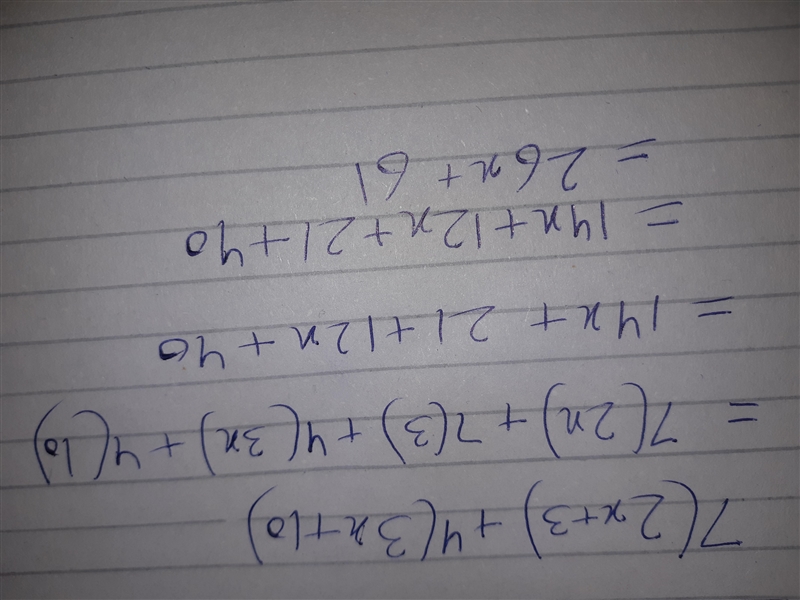 7(2x+3)+4(3x+10)
= 7(2x)+7(3)+4(3x)+4(10)
= 14x+21+12x+40
= 14x+12x+21+40
= 26x+61